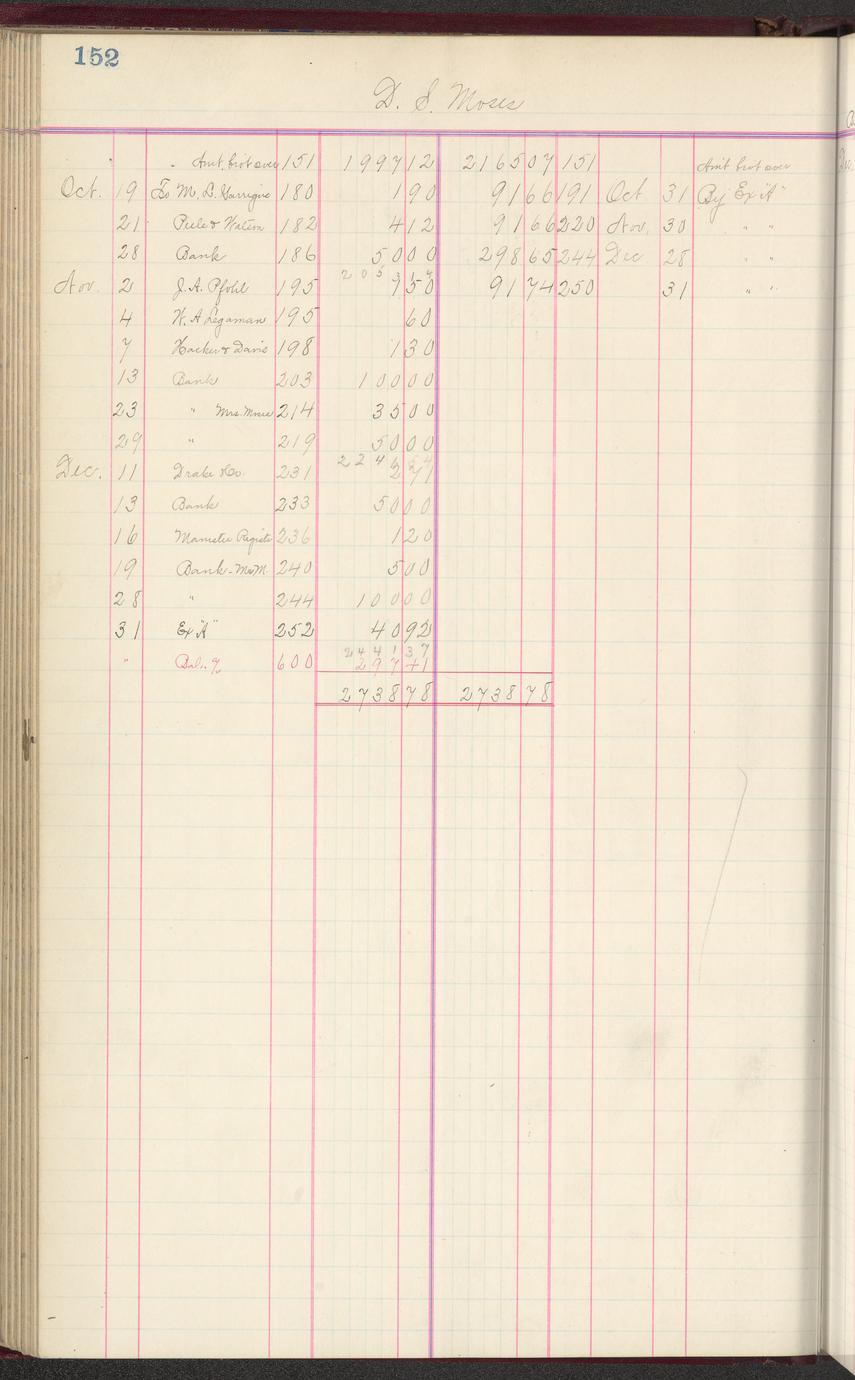 152
D. S. Moses
Amt. brot over 151 1997 12 2165 07 151 Amt brot over
Oct. 19 To M. L. 180 1 90 91 66 191 Oct 31 By Ex "A"
21 Peele & Watson 182 4 12 91 66 220 Nov. 30 " "
28 Bank 186 50 00 298 65 244 Dec 28 " "
2053 14
Nov. 2 J. A. Pfohl 195 7 50 91 74 250 31 " "
4 W. A. 195 60
7 Hacker & Davis 198 1 30
13 Bank 203 100 00
23 " Mrs. Moses 214 35 00
29 " 219 50 00
224 54
Dec. 11 Drake & Co. 231 2 71
13 Bank 233 50 00
16 Manistee 236 1 20
19 Bank - Mrs M. 240 5 00
28 " 244 100 00
31 Ex "A" 252 40 92
2441 37
" Bal. 600 297 41
2738 78 2738 78